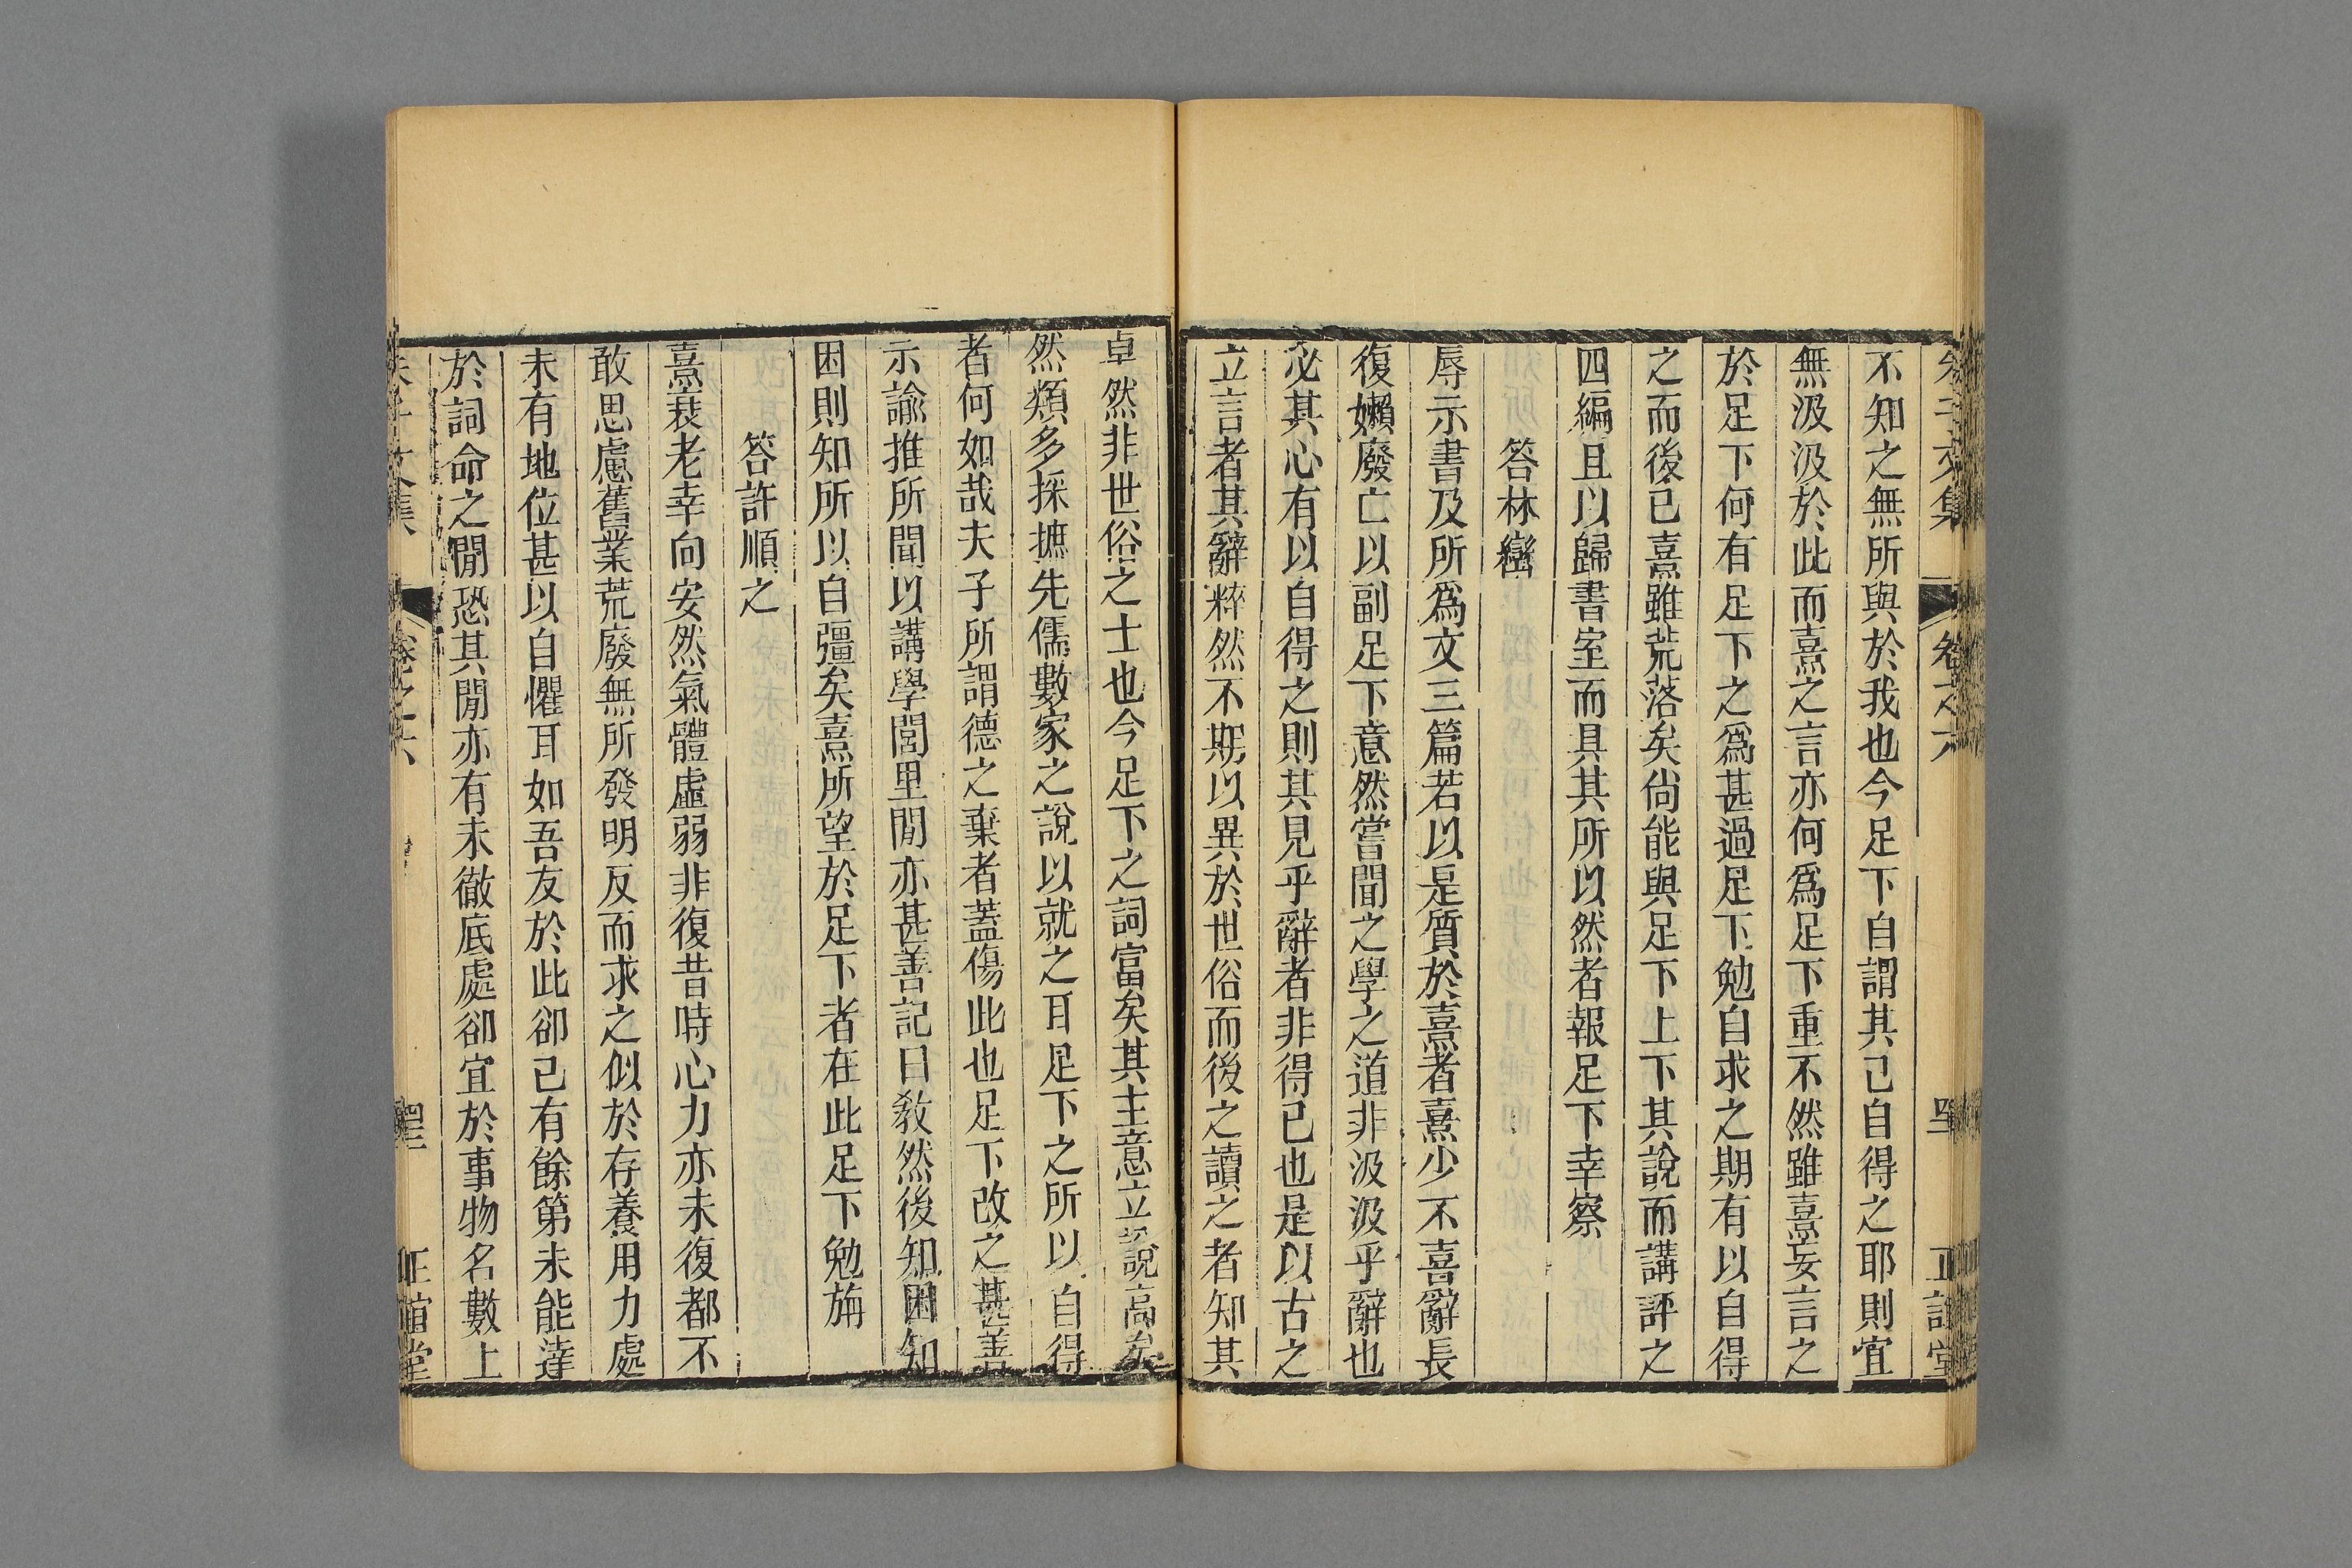 朱子文集 卷之六 正誼堂
不知之無所與於我也今足下自謂其已自得之耶則宜
無汲汲於此而熹之言亦何爲足下重不然雖熹妄言之
於足下何有足下之爲甚過足下勉自求之期有以自得
之而後已熹雖荒落矣尙能與足下上下其說而講評之
四編且以歸書室而具其所以然者報足下幸察
答林巒
辱示書及所爲文三篇若以是質於熹者熹少不喜辭長
復嬾廢亡以副足下意然嘗聞之學之道非汲汲乎辭也
必其心有以自得之則其見乎辭者非得已也是以古之
立言者其辭粹然不期以異於世俗而後之讀之者知其
卓然非世俗之士也今足下之詞富矣其主意立說高矣
然類多採摭先儒數家之說以就之耳足下之所以自得
者何如哉夫子所謂德之棄者蓋傷此也足下改之甚善
示諭推所聞以講學閭里閒亦甚善記曰敎然後知困知
困則知所以自彊矣熹所望於足下者在此足下勉旃
答許順之
熹衰老幸向安然氣體虛弱非復昔時心力亦未復都不
敢思慮舊業荒廢無所發明反而求之似於存養用力處
未有地位甚以自懼耳如吾友於此卻已有餘第未能達
於詞命之閒恐其閒亦有未徹底處卻宜於事物名數上
朱子文集 卷之六 正誼堂